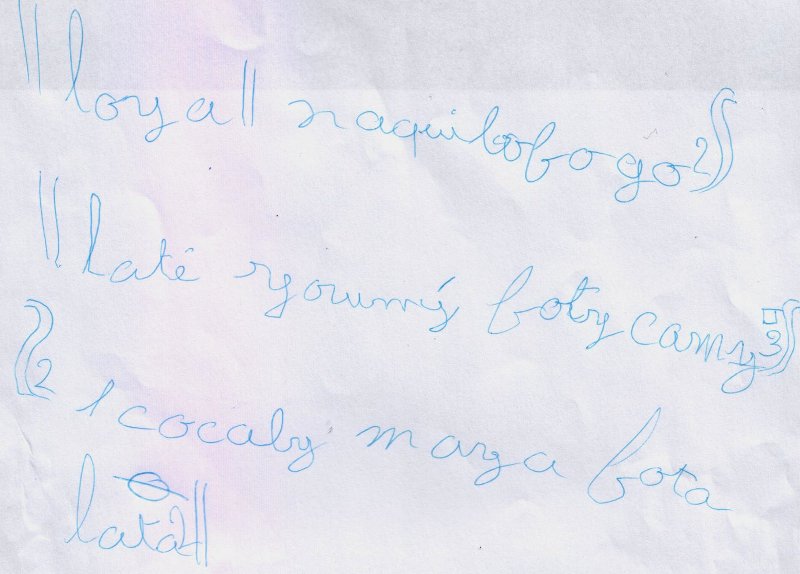 || loya || naquibofogo 2 ∫∫
|| laté ryoumý foty camy 3 ∫∫
∫∫ 2 1 cocaby maza fota
lata 2 ||